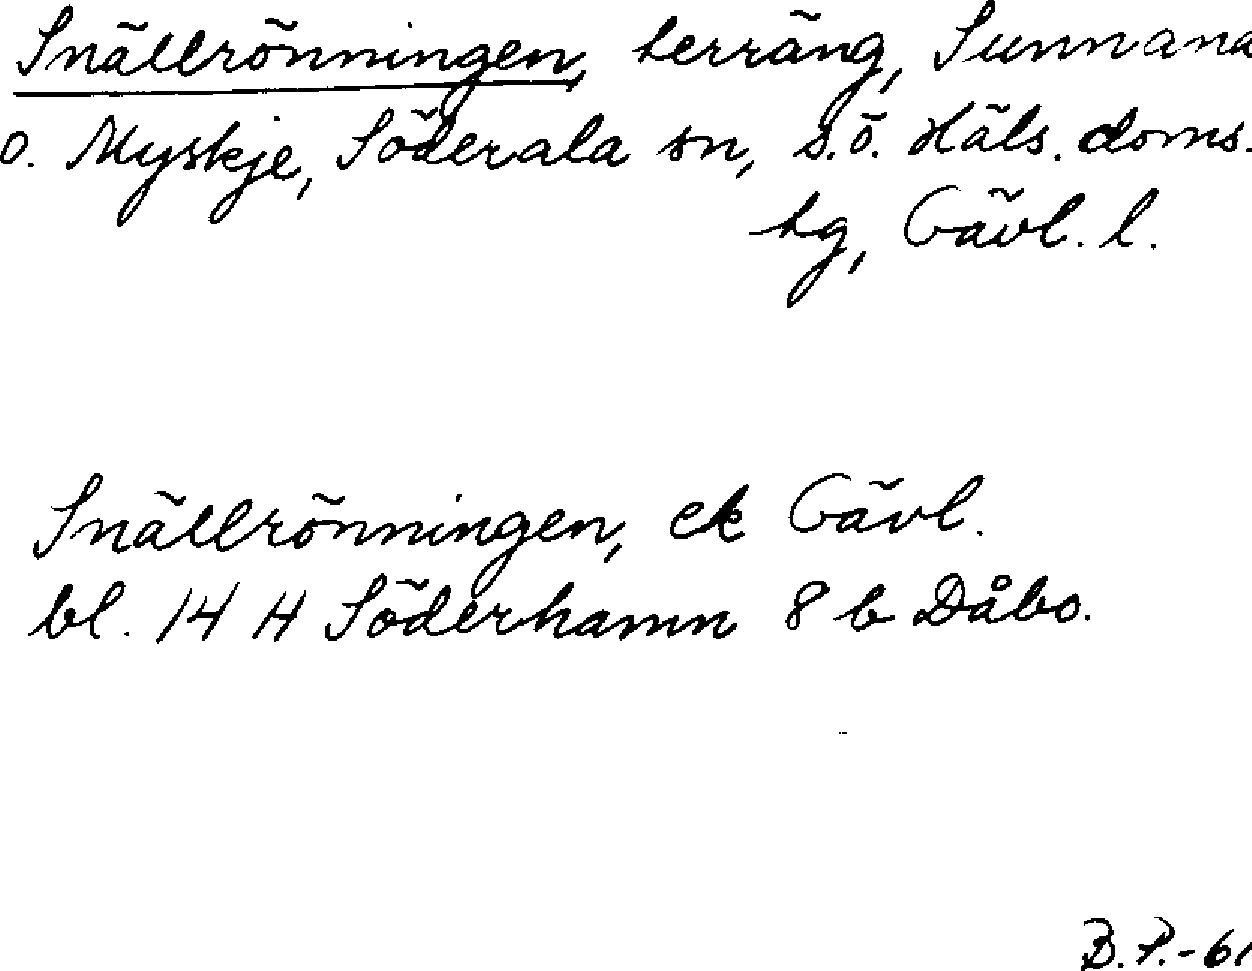 Snällrönningen, terräng, Sunnana
o. Myskje, Söderala sn, s.ö. Häls. doms.
tg, Gävl. l.
Snällrönningen, ek Gävl.
bl. 14 H Söderhamn 8 b Dåbo.
B.P.-61